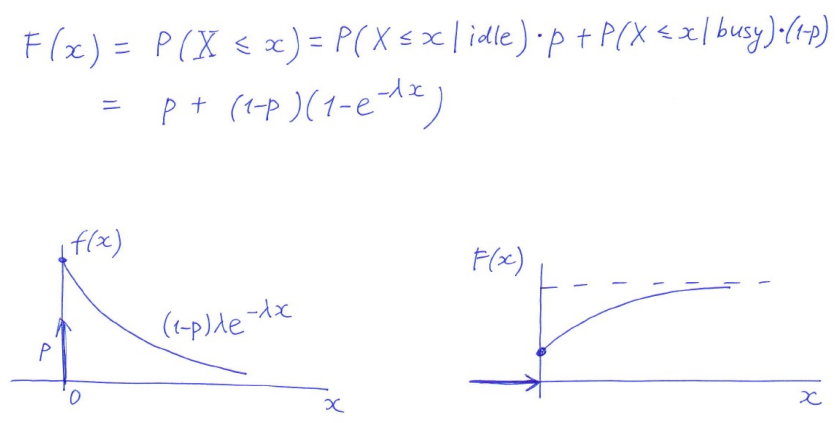 F(x) = P(X ≤ x) = P(X ≤ x | idle) · p + P(X ≤ x | busy) · (1-p)
= p + (1-p)(1-e^{-λx})
f(x)
(1-p)λe^{-λx}
p
0
x
F(x)
x